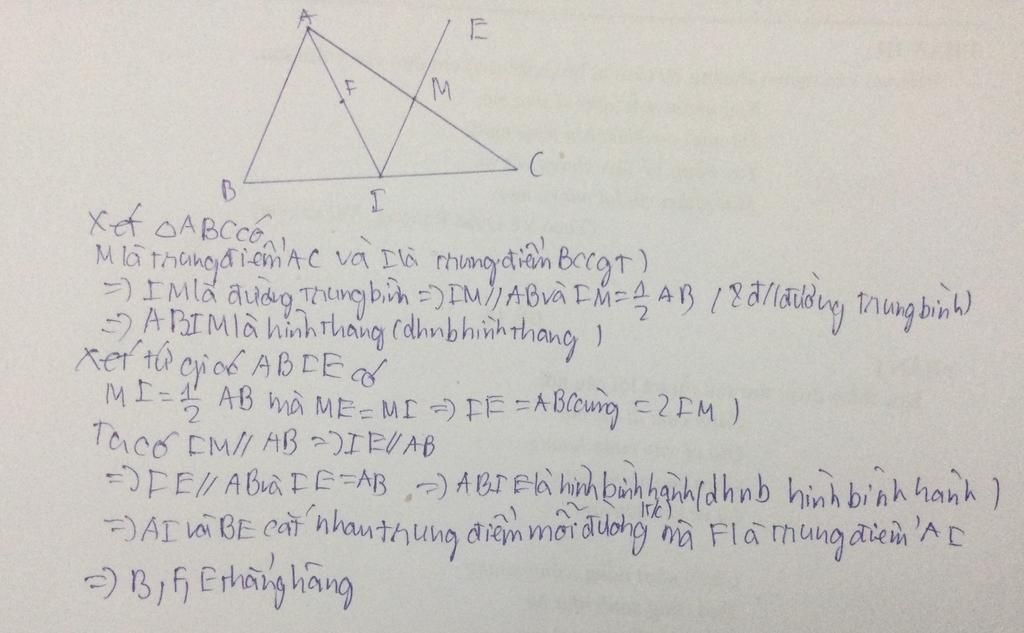 A
E
F
M
B
I
C
Xét △ABC có
M là trung điểm AC và I là trung điểm BC (gT)
=> IM là đường trung bình => IM // AB và IM = 1/2 AB (2 đ/l đường trung bình)
=> ABIM là hình thang (dhnb hình thang)
Xét tứ giác ABIE có
MI = 1/2 AB mà ME = MI => IE = AB (cùng = 2IM)
Ta có IM // AB => IE // AB
=> IE // AB và IE = AB => ABIE là hình bình hành (dhnb hình bình hành)
=> AI và BE cắt nhau trung điểm mỗi đường (T/C) mà F là trung điểm AI
=> B, F, E thẳng hàng